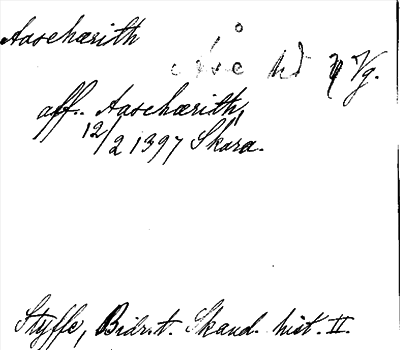 Aasehærith
Åse hd Vg.
aff. Aasehærith,
12/2 1397 Skara.
Styffe, Bidr. t. Skand. hist. II.